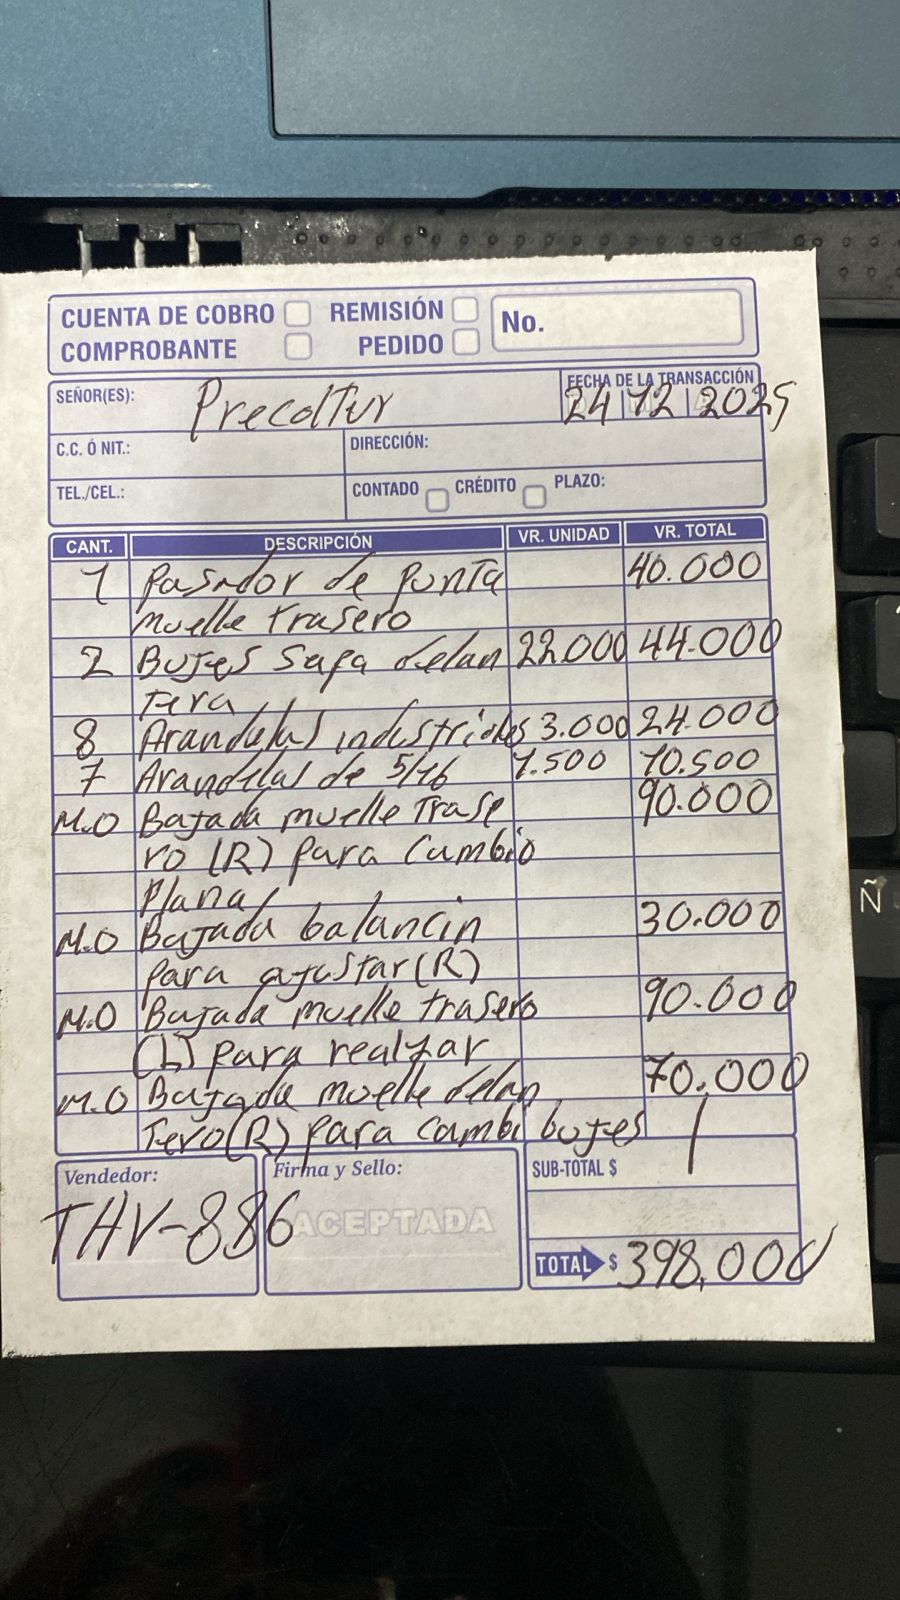 CUENTA DE COBRO REMISIÓN No.
COMPROBANTE PEDIDO
SEÑOR(ES): Precoltur FECHA DE LA TRANSACCIÓN
24 12 2025
C.C. Ó NIT.: DIRECCIÓN:
TEL./CEL.: CONTADO CRÉDITO PLAZO:
CANT. DESCRIPCIÓN VR. UNIDAD VR. TOTAL
1 Pasador de punta 40.000
muelle trasero
2 Bujes Sapa delan 22.000 44.000
tera
8 Arandelas industriales 3.000 24.000
7 Arandelas de 5/16 1.500 10.500
M.O Bajada muelle Trase 90.000
ro (R) para Cambio
Plana
M.O Bajada balancin 30.000
para ajustar (R)
M.O Bajada muelle trasero 90.000
(L) para realzar
M.O Bajada muelle delan 70.000
Tero (R) para cambi bujes
Vendedor: Firma y Sello: SUB-TOTAL $
THV-886 ACEPTADA
TOTAL $ 398,000
Ñ